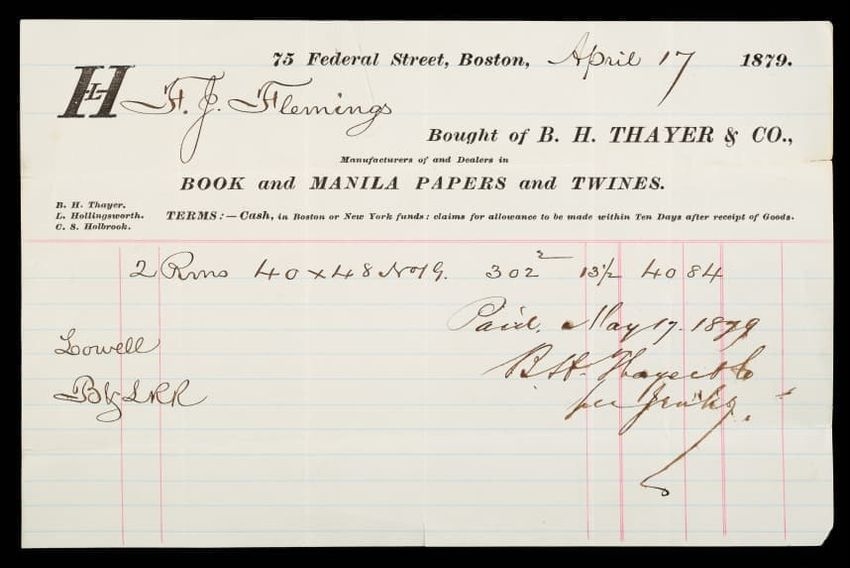 75 Federal Street, Boston, April 17 1879.
HLH F. J. Flemings
Bought of B. H. THAYER & CO.,
Manufacturers of and Dealers in
BOOK and MANILA PAPERS and TWINES.
B. H. Thayer.
L. Hollingsworth.
C. S. Holbrook.
TERMS:—Cash, in Boston or New York funds: claims for allowance to be made within Ten Days after receipt of Goods.
2 Rms 40 x 48 No 19. 302 13½ 40 84
Paid. May 17. 1879
Lowell
B. H. Thayer & Co
By L R R
per